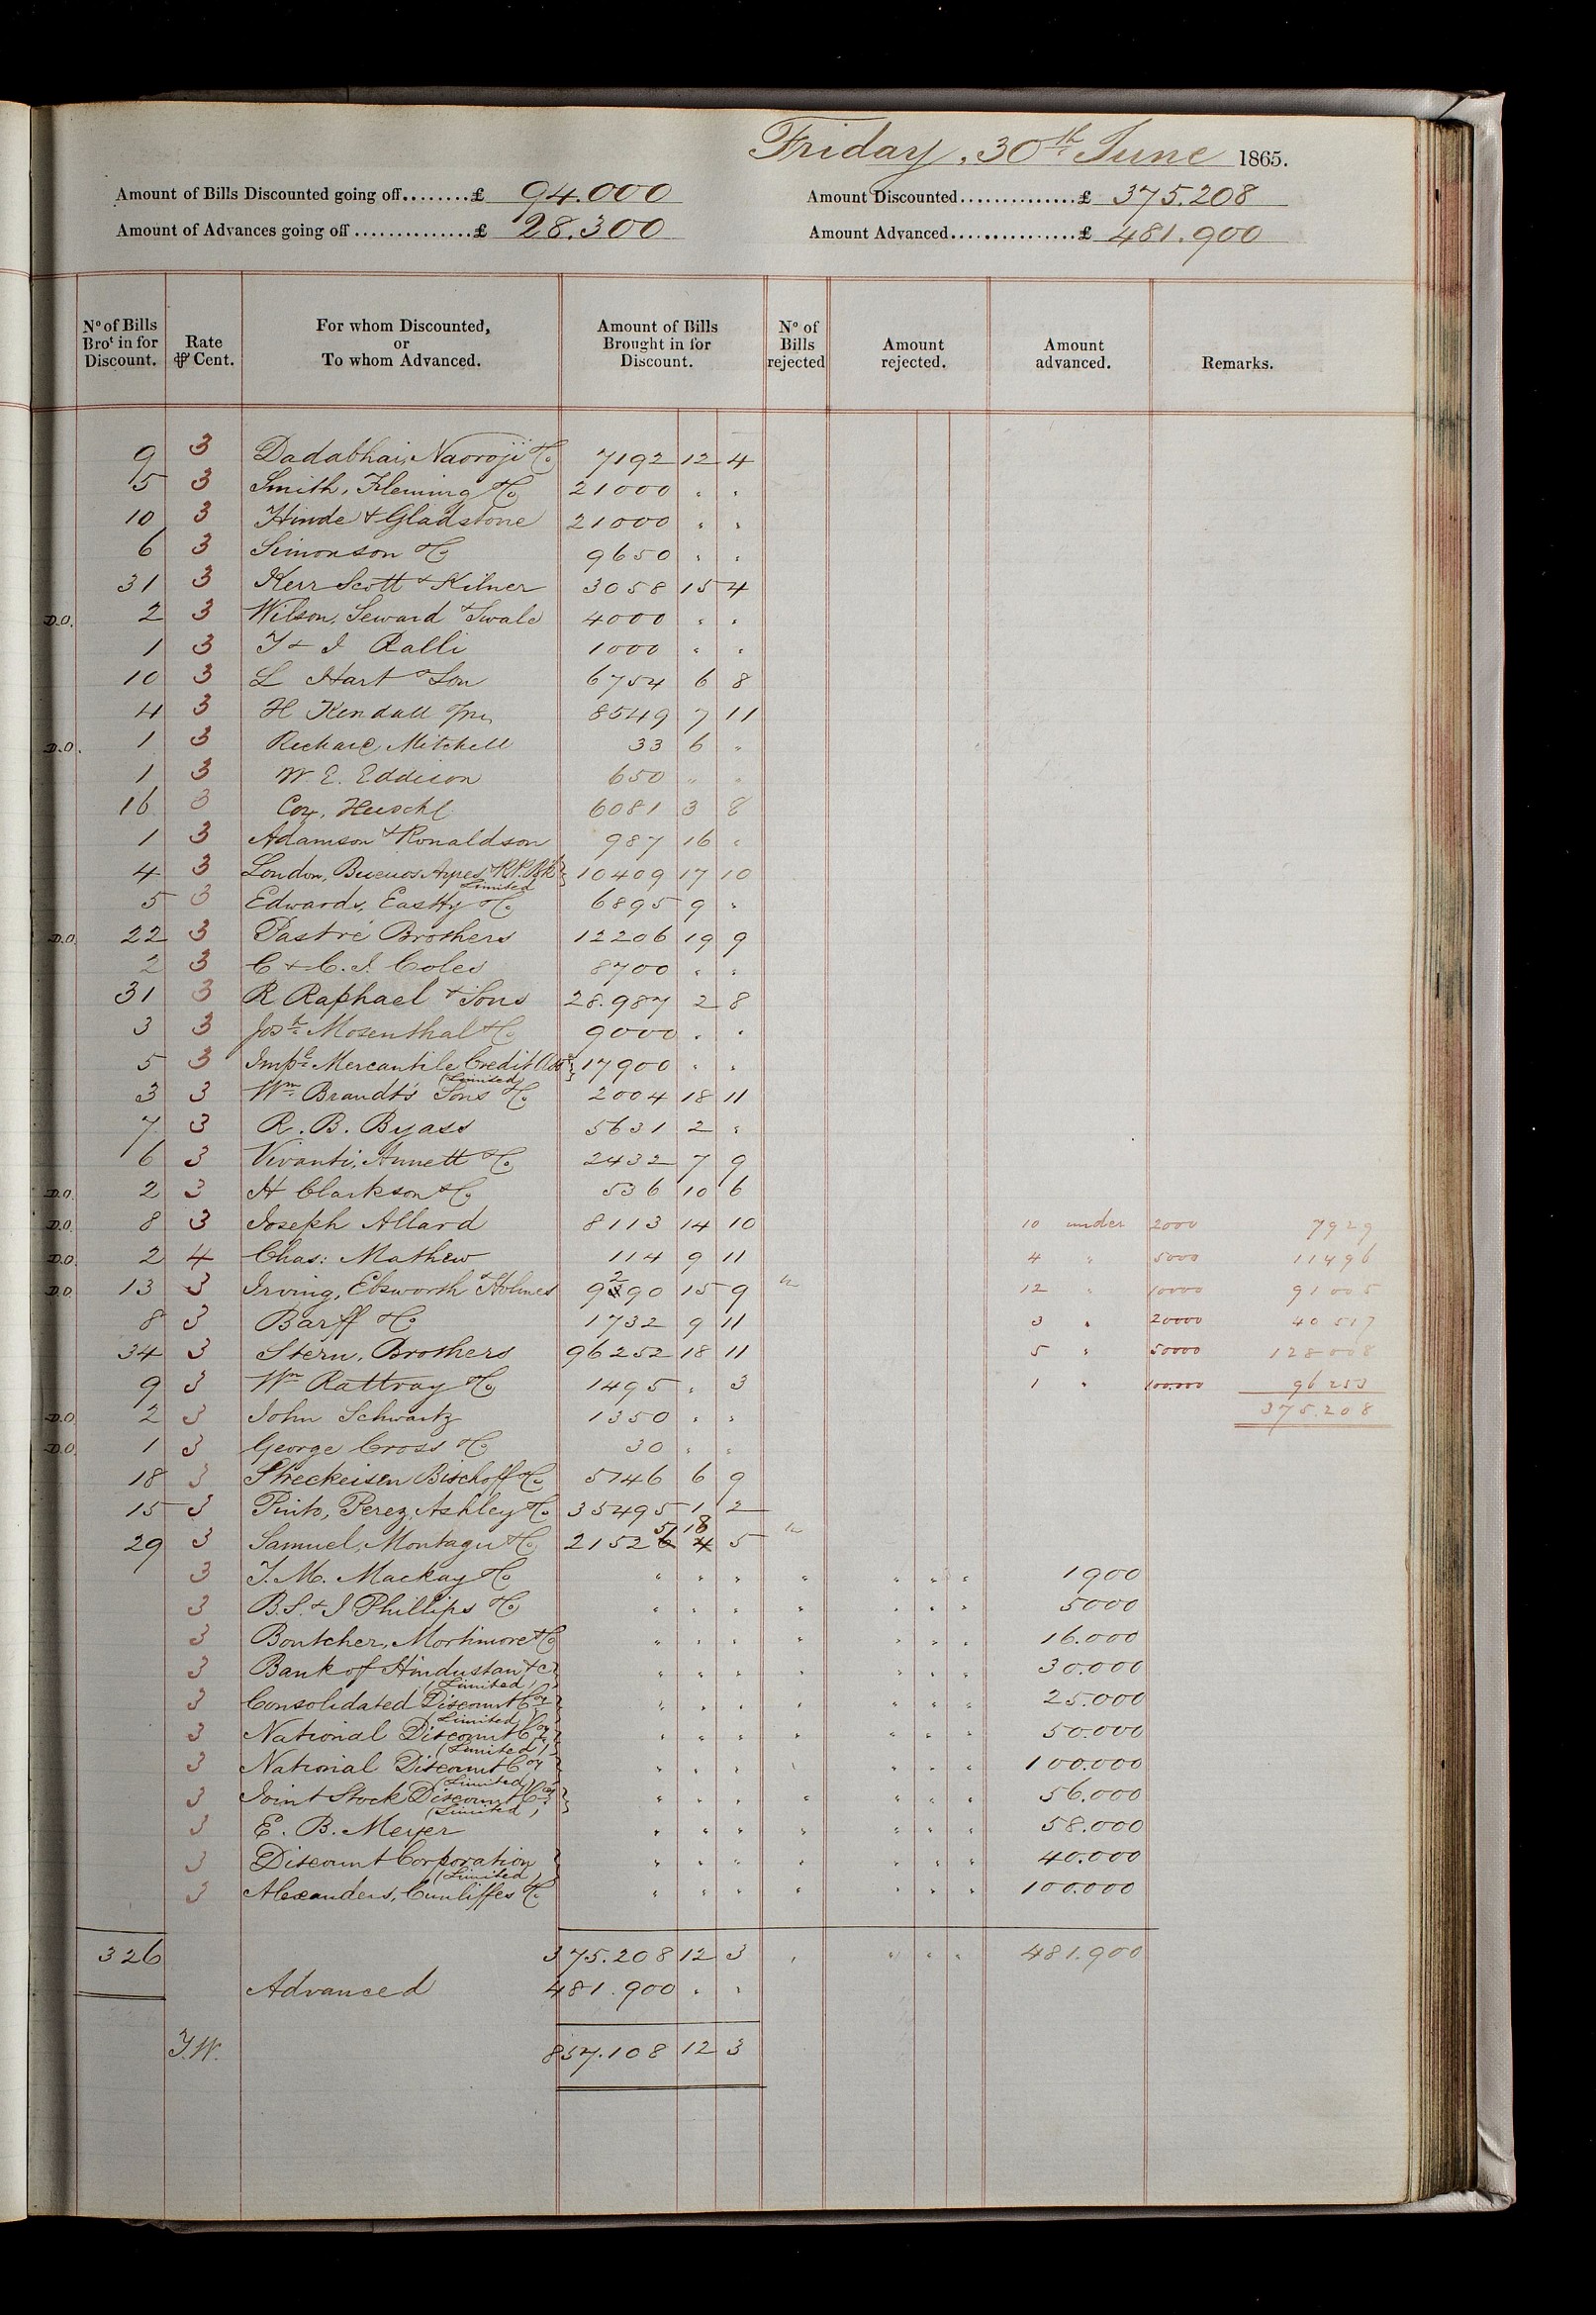 Friday, 30th June 1865.
Amount of Bills Discounted going off........£ 94.000 Amount Discounted..............£ 375.208
Amount of Advances going off ..............£ 28.300 Amount Advanced................£ 481.900
No of Bills Brot in for Discount. Rate ⅌ Cent. For whom Discounted, or To whom Advanced. Amount of Bills Brought in for Discount. No of Bills rejected Amount rejected. Amount advanced. Remarks.
9 3 Dadabhai, Naoroji & Co 7192 12 4
5 3 Smith, Fleming & Co 21000 " "
10 3 Hinde & Gladstone 21000 " "
6 3 Simonson & Co 9650 " "
31 3 Kerr Scott & Kilner 3058 15 4
D.O. 2 3 Wilson, Seward & Swale 4000 " "
1 3 T & I Ralli 1000 " "
10 3 L Hart & Son 6754 6 8
4 3 H Kendall Jnr 8549 7 11
D.O. 1 3 Richard Mitchell 33 6 "
1 3 W. E. Eddison 650 " "
16 3 Cox, 6081 3 8
1 3 Adamson & Ronaldson 987 16 "
4 3 London, Buenos Ayres & R.P. Bk 10409 17 10
Limited
5 3 Edwards, Eastty & Co 6895 9 "
D.O. 22 3 Pastré Brothers 12206 19 9
2 3 C & C. I. Coles 8700 " "
31 3 R Raphael & Sons 28.987 2 8
3 3 Josh Mosenthal & Co 9000 " "
5 3 Impl Mercantile Credit Assn 17900 " "
(Limited)
3 3 Wm Brandt's Sons & Co 2004 18 11
7 3 R. B. Byass 5631 2 "
6 3 Vivanti, Annett & Co 2432 7 9
D.O. 2 3 H Clarkson & Co 536 10 6
D.O. 8 3 Joseph Allard 8113 14 10 10 under 2000 7929
D.O. 2 4 Chas: Mathew 114 9 11 4 " 5000 11496
D.O. 13 3 Irving, Ebsworth & Holmes 9290 15 9 12 " 10000 91005
8 3 Barff & Co 1732 9 11 3 " 20000 40517
34 3 Stern, Brothers 96252 18 11 5 " 50000 128008
9 3 Wm Rattray & Co 1495 " 3 1 " 100.000 96253
D.O. 2 3 John Schwartz 1350 " " 375.208
D.O. 1 3 George Cross & Co 30 " "
18 3 Streckeisen Bischoff & Co 5146 6 9
15 3 Pinto, Perez, Ashley & Co 35495 1 2
29 3 Samuel, Montagu & Co 21525 18 5
3 T. M. Mackay & Co " " " " " " " 1900
3 B.S. & I Phillips & Co " " " " " " " 5000
3 Boutcher, Mortimore & Co " " " " " " " 16.000
3 Bank of Hindustan &c " " " " " " " 30.000
(Limited)
3 Consolidated Discount Coy " " " " " " 25.000
(Limited)
3 National Discount Coy " " " " " " " 50.000
(Limited)
3 National Discount Coy " " " " " " " 100.000
(Limited)
3 Joint Stock Discount Coy " " " " " " " 56.000
(Limited)
3 E. B. Meyer " " " " " " " 58.000
3 Discount Corporation " " " " " " " 40.000
(Limited)
3 Alexanders, Cunliffes & Co " " " " " " " 100.000
326 375.208 12 3 " " " " 481.900
Advanced 481.900 " "
T.W. 857.108 12 3